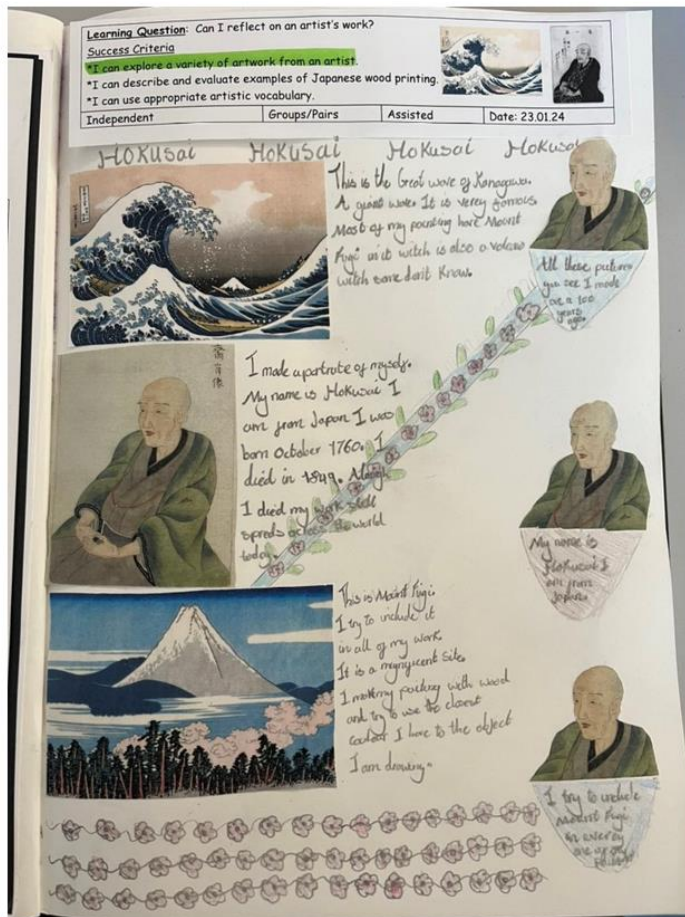 Learning Question: Can I reflect on an artist's work?
Success Criteria
*I can explore a variety of artwork from an artist.
*I can describe and evaluate examples of Japanese wood printing.
*I can use appropriate artistic vocabulary.
Independent Groups/Pairs Assisted Date: 23.01.24
HOKUSAI HOKUSAI HOKUSAI HOKUSAI
This is the Great wave of Kanagawa.
A giant wave. It is verey famous
Most of my painting have Mount
Fugi in it witch is also a volcano
witch some don't know.
All these pictures
you see I made
over a 100
years
ago.
I made a portrate of myself.
My name is Hokusai I
am from Japan I was
born October 1760. I
died in 1849.
I died my work still
spreds across the world
today.
My name is
Hokusai I
am from
Japan.
This is Mount Fugi.
I try to include it
in all of my work
It is a magnificent site.
I my with wood
and try to use the closest
colour I have to the object
I am drawing.
I try to include
Mount Fugi
in everey
one of my